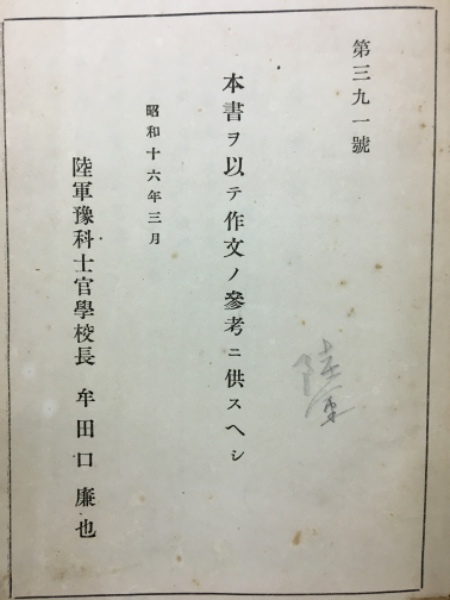 第三九一號
本書ヲ以テ作文ノ參考ニ供スヘシ
昭和十六年三月
陸軍豫科士官學校長 牟田口廉也
陸軍